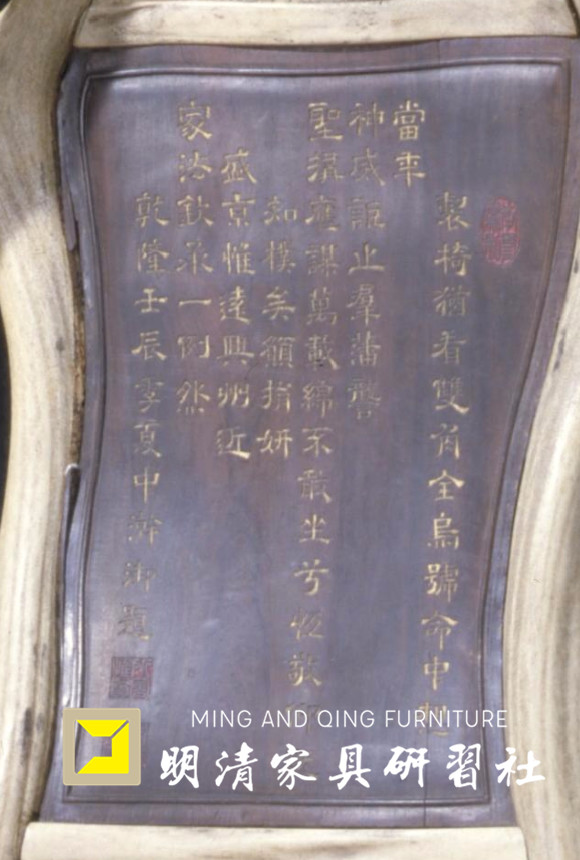 製椅猶看雙角全烏號命中
當年
神威詎止羣藩讋
聖 應謀萬載綿不敢坐兮恆敬
知樸矣願捐妍
盛京惟遠興州近
家法欽承一例然
乾隆壬辰季夏中澣御題
MING AND QING FURNITURE
明清家具研習社